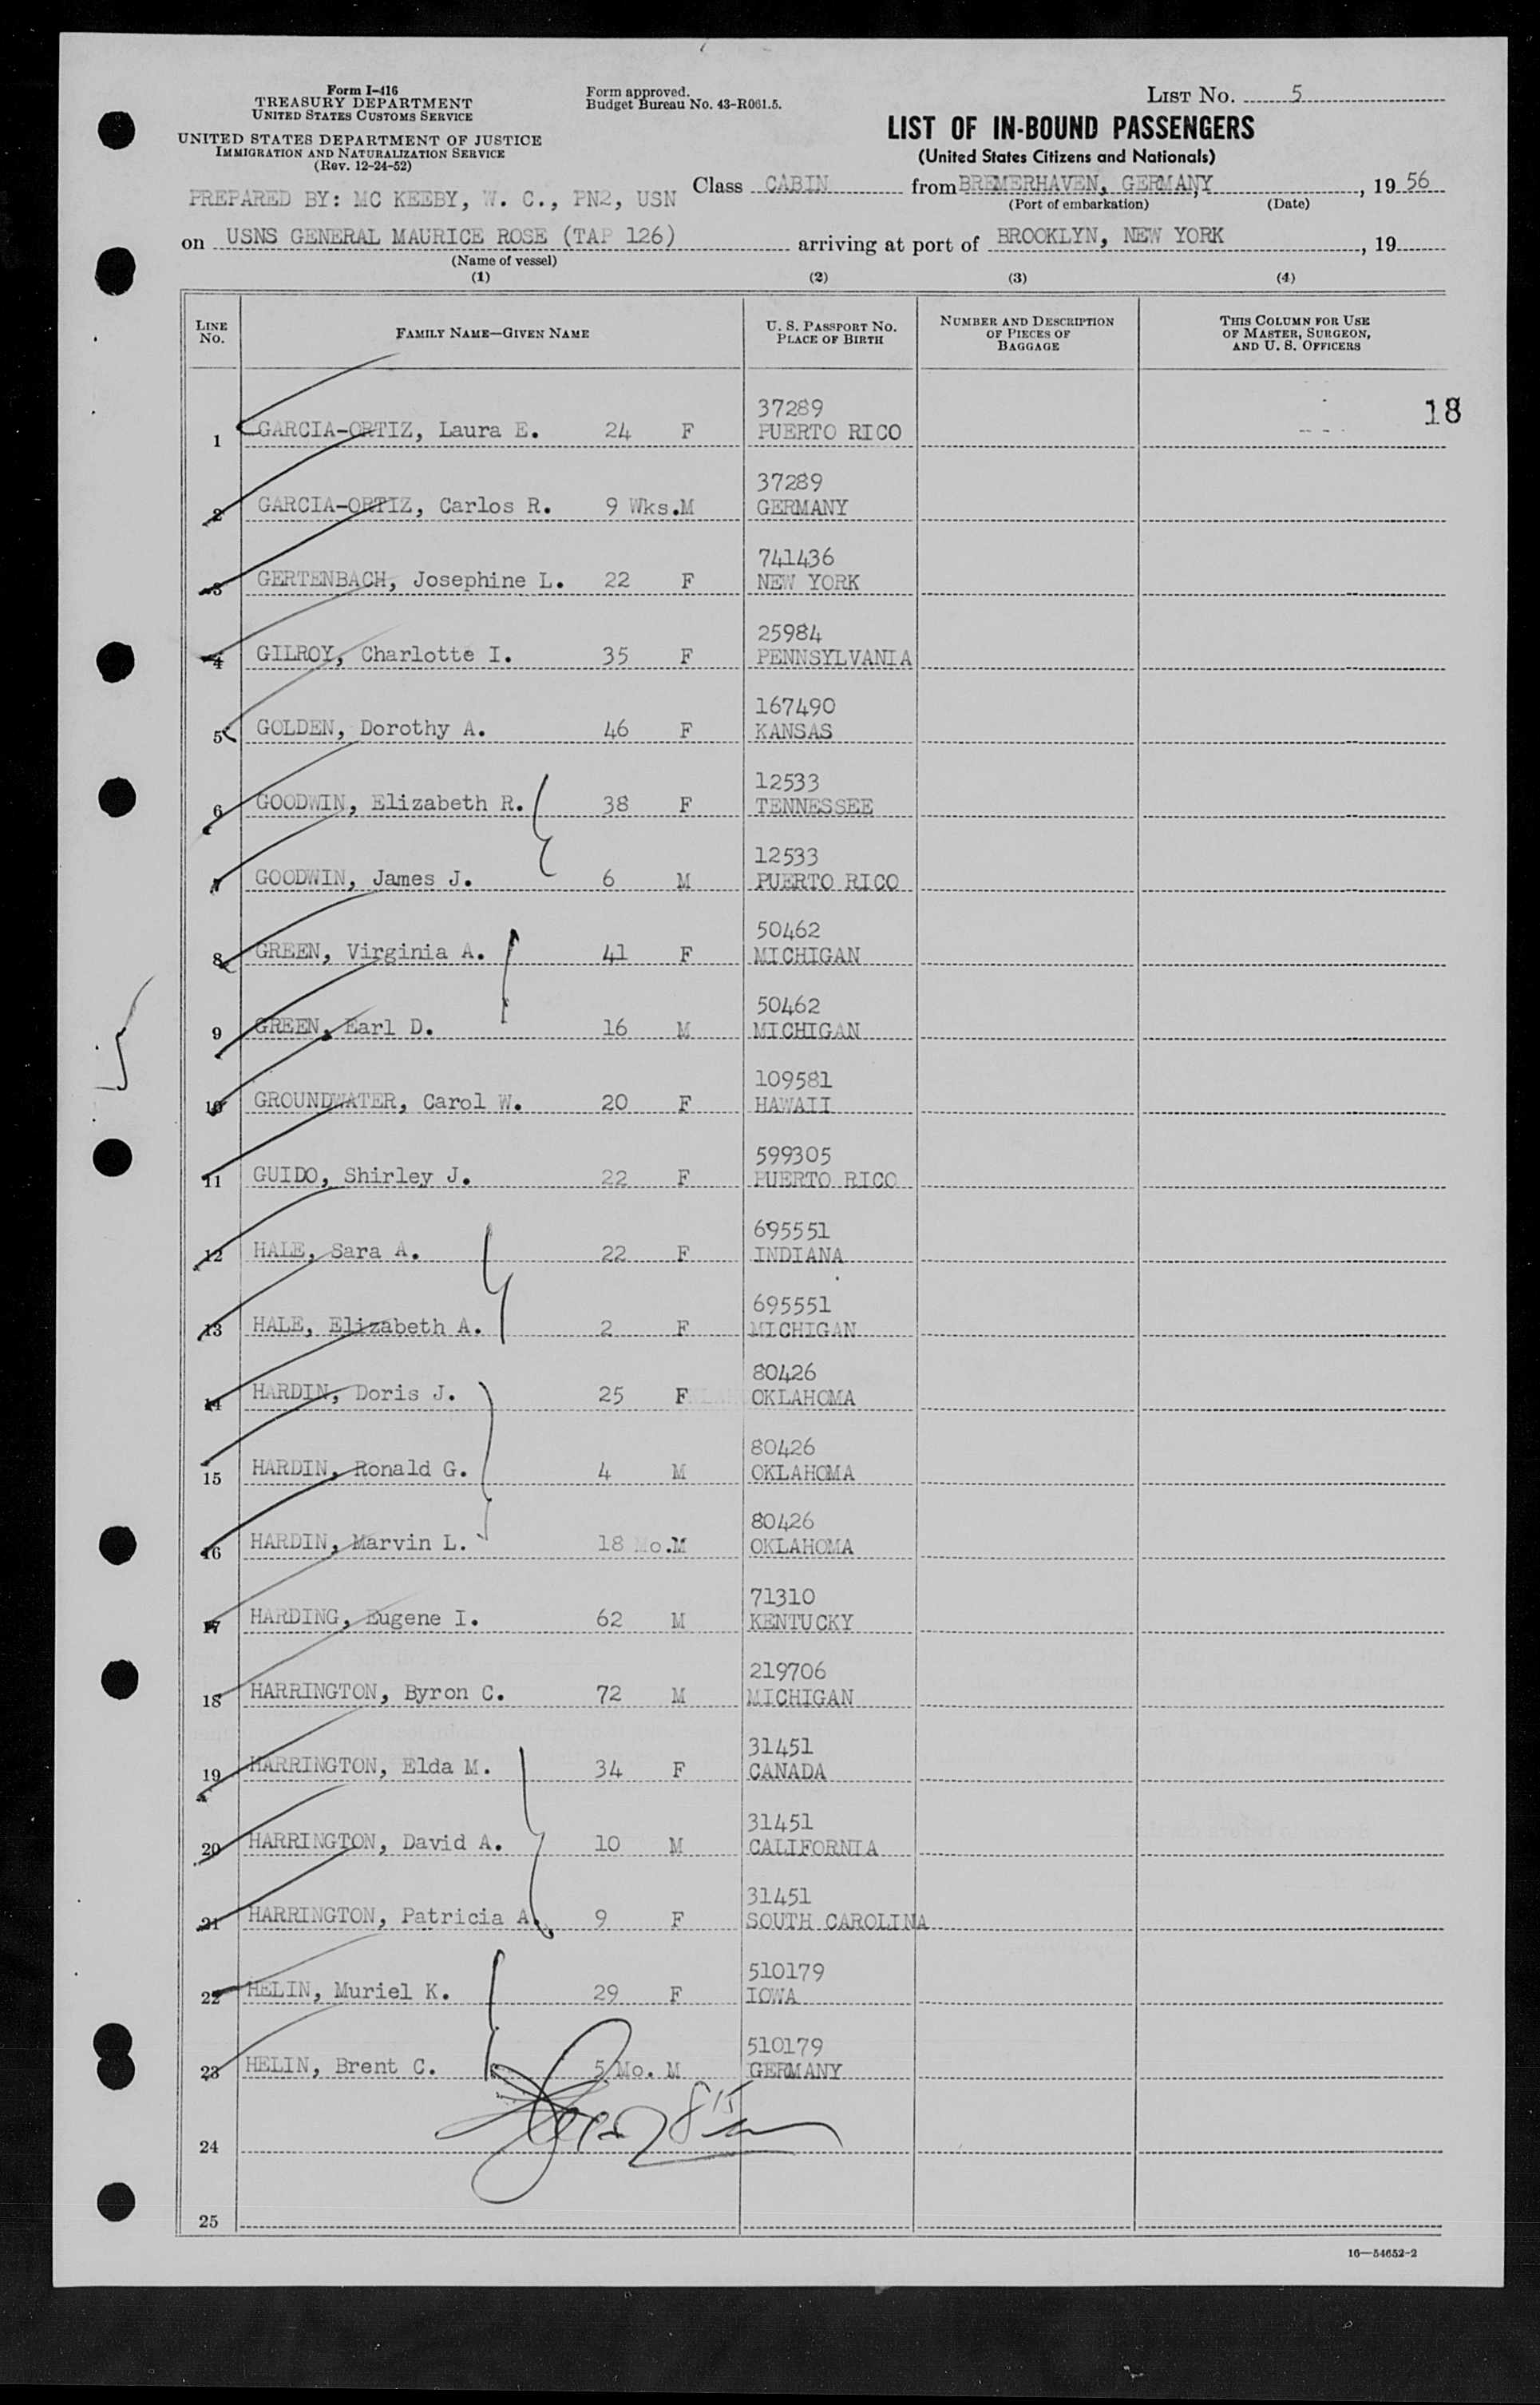 Form I-416
TREASURY DEPARTMENT
UNITED STATES CUSTOMS SERVICE
UNITED STATES DEPARTMENT OF JUSTICE
IMMIGRATION AND NATURALIZATION SERVICE
(Rev. 12-24-52)
Form approved.
Budget Bureau No. 43-R061.5.
LIST No. 5
LIST OF IN-BOUND PASSENGERS
(United States Citizens and Nationals)
PREPARED BY: MC KEEBY, W. C., PN2, USN
Class CABIN from BREMERHAVEN, GERMANY, 1956
(Port of embarkation) (Date)
on USNS GENERAL MAURICE ROSE (TAP 126) arriving at port of BROOKLYN, NEW YORK, 19
(Name of vessel)
(1) (2) (3) (4)
LINE No. FAMILY NAME—GIVEN NAME U. S. PASSPORT No. PLACE OF BIRTH NUMBER AND DESCRIPTION OF PIECES OF BAGGAGE THIS COLUMN FOR USE OF MASTER, SURGEON, AND U. S. OFFICERS
18
37289
1 GARCIA-ORTIZ, Laura E. 24 F PUERTO RICO
37289
2 GARCIA-ORTIZ, Carlos R. 9 Wks.M GERMANY
741436
3 GERTENBACH, Josephine L. 22 F NEW YORK
25984
4 GILROY, Charlotte I. 35 F PENNSYLVANIA
167490
5 GOLDEN, Dorothy A. 46 F KANSAS
12533
6 GOODWIN, Elizabeth R. 38 F TENNESSEE
12533
7 GOODWIN, James J. 6 M PUERTO RICO
50462
8 GREEN, Virginia A. 41 F MICHIGAN
50462
9 GREEN, Earl D. 16 M MICHIGAN
109581
10 GROUNDWATER, Carol W. 20 F HAWAII
599305
11 GUIDO, Shirley J. 22 F PUERTO RICO
695551
12 HALE, Sara A. 22 F INDIANA
695551
13 HALE, Elizabeth A. 2 F MICHIGAN
80426
14 HARDIN, Doris J. 25 F OKLAHOMA
80426
15 HARDIN, Ronald G. 4 M OKLAHOMA
80426
16 HARDIN, Marvin L. 18 Mo.M OKLAHOMA
71310
17 HARDING, Eugene I. 62 M KENTUCKY
219706
18 HARRINGTON, Byron C. 72 M MICHIGAN
31451
19 HARRINGTON, Elda M. 34 F CANADA
31451
20 HARRINGTON, David A. 10 M CALIFORNIA
31451
21 HARRINGTON, Patricia A. 9 F SOUTH CAROLINA
510179
22 HELIN, Muriel K. 29 F IOWA
510179
23 HELIN, Brent C. 5 Mo. M GERMANY
24
25
16—54652-2